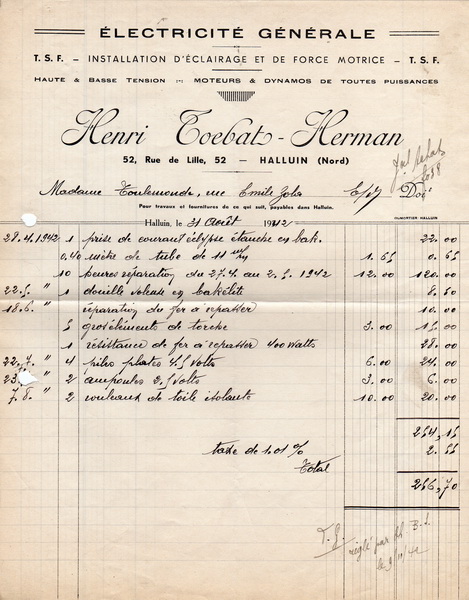 ÉLECTRICITÉ GÉNÉRALE
T. S. F. - INSTALLATION D'ÉCLAIRAGE ET DE FORCE MOTRICE - T. S. F.
HAUTE & BASSE TENSION MOTEURS & DYNAMOS DE TOUTES PUISSANCES
Henri Toebat-Herman
52, Rue de Lille, 52 — HALLUIN (Nord)
Madame Toulemonde, rue Emile Zola Doit
Pour travaux et fournitures de ce qui suit, payables dans Halluin.
DUMORTIER HALLUIN
Halluin, le 31 Août 1942
28.4.1942 1 prise de courant éclypse étanche en bak. 22.00
0,40 mètre de tube de 11 1.65 0.65
10 heures réparation du 27.4 au 2.5.1942 12.00 120.00
22.5 " 1 douille voleuse en bakélite 8.50
18.6. " réparation du fer à repasser 10.00
5 gros éléments de torche 3.00 15.00
1 résistance de fer à repasser 400 Watts 28.00
22.7. " 4 piles plates 4.5 Volts 6.00 24.00
23. " 2 ampoules 2.5 Volts 3.00 6.00
7.8. " 2 rouleaux de toile isolante 10.00 20.00
254,15
taxe de 1.01 % 2.55
Total
256,70
réglé par